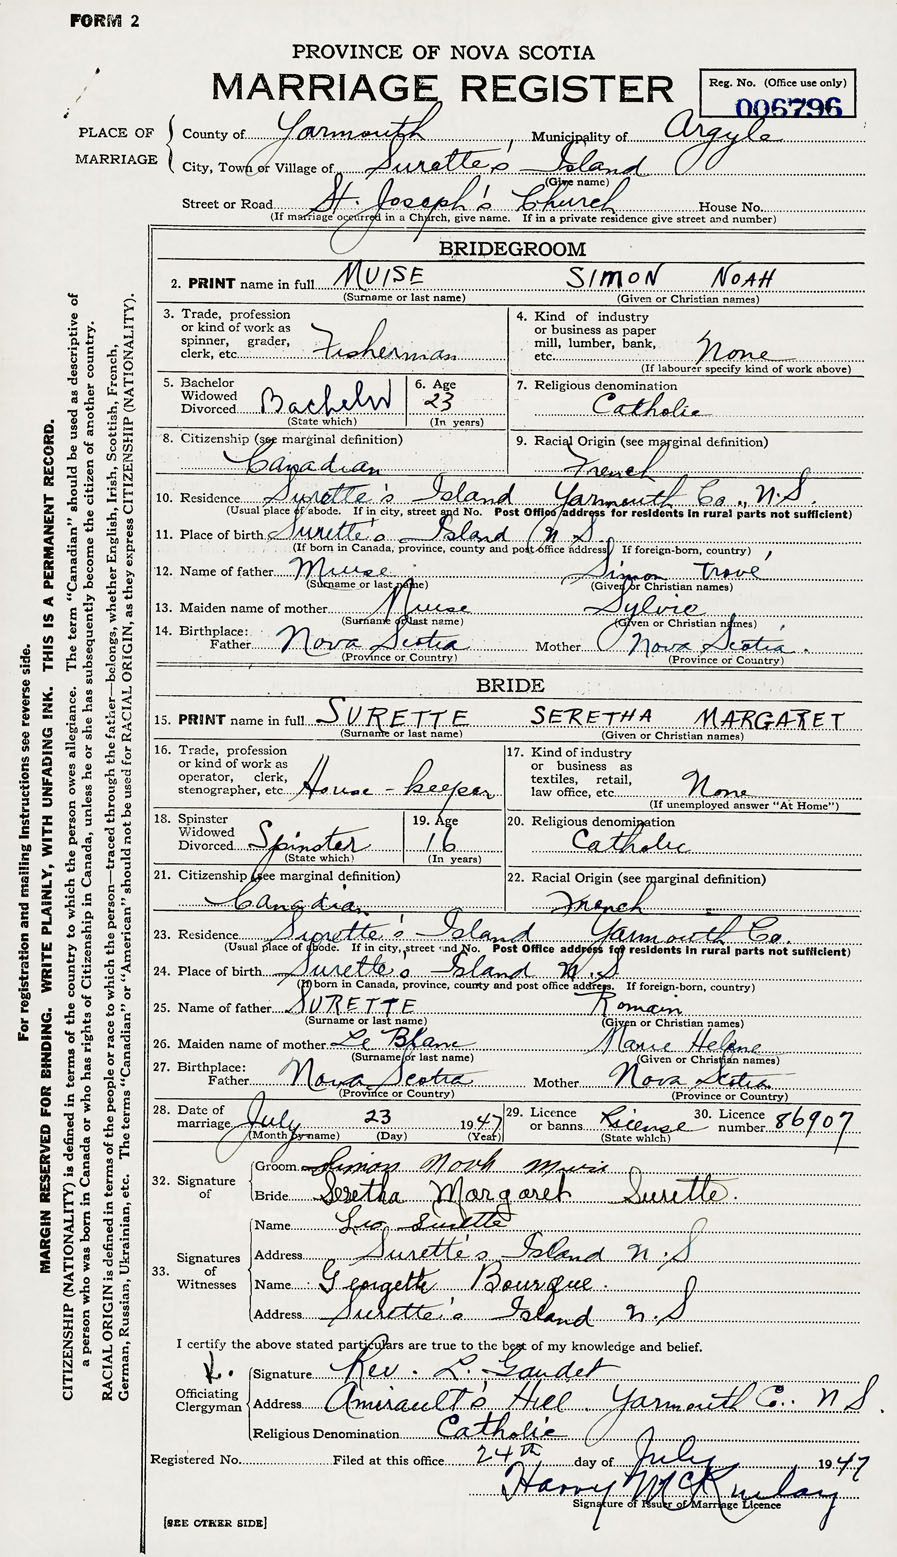 FORM 2
PROVINCE OF NOVA SCOTIA
MARRIAGE REGISTER
Reg. No. (Office use only)
006796
PLACE OF MARRIAGE
County of Yarmouth Municipality of Argyle
City, Town or Village of Surette's Island
(Give name)
Street or Road St. Joseph's Church House No.
(If marriage occurred in a Church, give name. If in a private residence give street and number)
BRIDEGROOM
2. PRINT name in full MUISE SIMON NOAH
(Surname or last name) (Given or Christian names)
3. Trade, profession or kind of work as spinner, grader, clerk, etc. Fisherman
4. Kind of industry or business as paper mill, lumber, bank, etc. None
(If labourer specify kind of work above)
5. Bachelor Widowed Divorced Bachelor
(State which)
6. Age 23
(In years)
7. Religious denomination Catholic
8. Citizenship (see marginal definition) Canadian
9. Racial Origin (see marginal definition) French
10. Residence Surette's Island Yarmouth Co., N.S.
(Usual place of abode. If in city, street and No. Post Office address for residents in rural parts not sufficient)
11. Place of birth Surette's Island N.S.
(If born in Canada, province, county and post office address. If foreign-born, country)
12. Name of father Muise Simon
(Surname or last name) (Given or Christian names)
13. Maiden name of mother Muise Sylvie
(Surname or last name) (Given or Christian names)
14. Birthplace: Father Nova Scotia Mother Nova Scotia.
(Province or Country) (Province or Country)
BRIDE
15. PRINT name in full SURETTE SERETHA MARGARET
(Surname or last name) (Given or Christian names)
16. Trade, profession or kind of work as operator, clerk, stenographer, etc. House-keeper
17. Kind of industry or business as textiles, retail, law office, etc. None
(If unemployed answer "At Home")
18. Spinster Widowed Divorced Spinster
(State which)
19. Age 16
(In years)
20. Religious denomination Catholic
21. Citizenship (see marginal definition) Canadian
22. Racial Origin (see marginal definition) French
23. Residence Surette's Island Yarmouth Co.
(Usual place of abode. If in city, street and No. Post Office address for residents in rural parts not sufficient)
24. Place of birth Surette's Island N.S.
(If born in Canada, province, county and post office address. If foreign-born, country)
25. Name of father SURETTE Romain
(Surname or last name) (Given or Christian names)
26. Maiden name of mother Le Blanc Marie Helene
(Surname or last name) (Given or Christian names)
27. Birthplace: Father Nova Scotia Mother Nova Scotia
(Province or Country) (Province or Country)
28. Date of marriage July 23 1947
(Month by name) (Day) (Year)
29. Licence or banns License
(State which)
30. Licence number 86907
32. Signature of
Groom Simon Noah Muise
Bride Seretha Margaret Surette.
33. Signatures of Witnesses
Name Leo Surette
Address Surette's Island N.S
Name Georgette Bourque.
Address Surette's Island N.S
I certify the above stated particulars are true to the best of my knowledge and belief.
Officiating Clergyman
Signature Rev. L. Gaudet
Address Amirault's Hill. Yarmouth Co. N S.
Religious Denomination Catholic
Registered No. Filed at this office 24th day of July 1947
Harry McKinlay
Signature of Issuer of Marriage Licence
[SEE OTHER SIDE]
For registration and mailing instructions see reverse side.
MARGIN RESERVED FOR BINDING. WRITE PLAINLY, WITH UNFADING INK. THIS IS A PERMANENT RECORD.
CITIZENSHIP (NATIONALITY) is defined in terms of the country to which the person owes allegiance. The term "Canadian" should be used as descriptive of
a person who was born in Canada or who has rights of Citizenship in Canada, unless he or she has subsequently become the citizen of another country.
RACIAL ORIGIN is defined in terms of the people or race to which the person—traced through the father—belongs, whether English, Irish, Scottish, French,
German, Russian, Ukrainian, etc. The terms "Canadian" or "American" should not be used for RACIAL ORIGIN, as they express CITIZENSHIP (NATIONALITY).